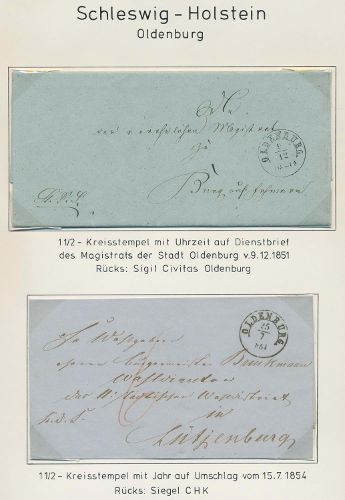 Schleswig-Holstein
Oldenburg
An
den
Magistrat
zu
Burg auf Fehmarn
OLDENBURG.
12
11/2 - Kreisstempel mit Uhrzeit auf Dienstbrief
des Magistrats der Stadt Oldenburg v.9.12.1851
Rücks: Sigil Civitas Oldenburg
Sr Wohlgeboren
Herrn Bürgermeister Brinkmann
in
Lütjenburg
OLDENBURG.
25
7
11/2 - Kreisstempel mit Jahr auf Umschlag vom 15.7.1854
Rücks: Siegel CHK